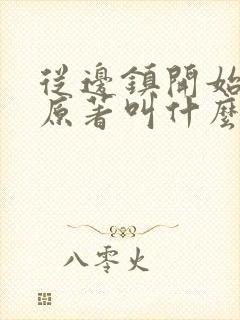 從邊鎮開始
原著叫什麼
八零火